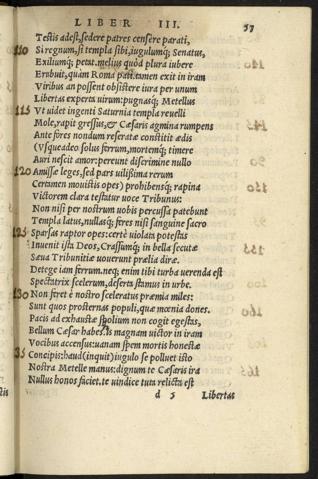 LIBER III. 37
Testis adest, sedere patres censere parati,
110 Si regnum, si templa sibi, iugulumq; Senatus,
Exiliumq; petat. melius quòd plura iubere
Erubuit, quàm Roma pati. tamen exit in iram
Viribus an possent obsistere iura per unum
Libertas experta uirum: pugnaxq; Metellus
115 Vt uidet ingenti Saturnia templa reuelli
Mole, rapit gressus, & Cæsaris agmina rumpens
Ante fores nondum reseratæ constitit ædis
(Vsqueadeo solus ferrum, mortemq; timere
Auri nescit amor: pereunt discrimine nullo
120 Amissæ leges, sed pars uilißima rerum
Certamen mouistis opes) prohibensq; rapina
Victorem clara testatur uoce Tribunus:
Non nisi per nostrum uobis percussa patebunt
Templa latus, nullasq; feres nisi sanguine sacro
125 Sparsas raptor opes: certè uiolata potestas
Inuenit ista Deos, Crassumq; in bella secutæ
Sæua Tribunitiæ uouerunt prælia diræ.
Detege iam ferrum. neq; enim tibi turba uerenda est
Spectatrix scelerum, deserta stamus in urbe.
130 Non feret è nostro sceleratus præmia miles:
Sunt quos prosternas populi, quæ mœnia dones.
Pacis ad exhaustæ spolium non cogit egestas,
Bellum Cæsar habes. Is magnam uictor in iram
Vocibus accensus: uanam spem mortis honestæ
35 Concipis: haud (inquit) iugulo se polluet isto
Nostra Metelle manus: dignum te Cæsaris ira
Nullus honos faciet. te uindice tuta relicta est
d 5 Libertas